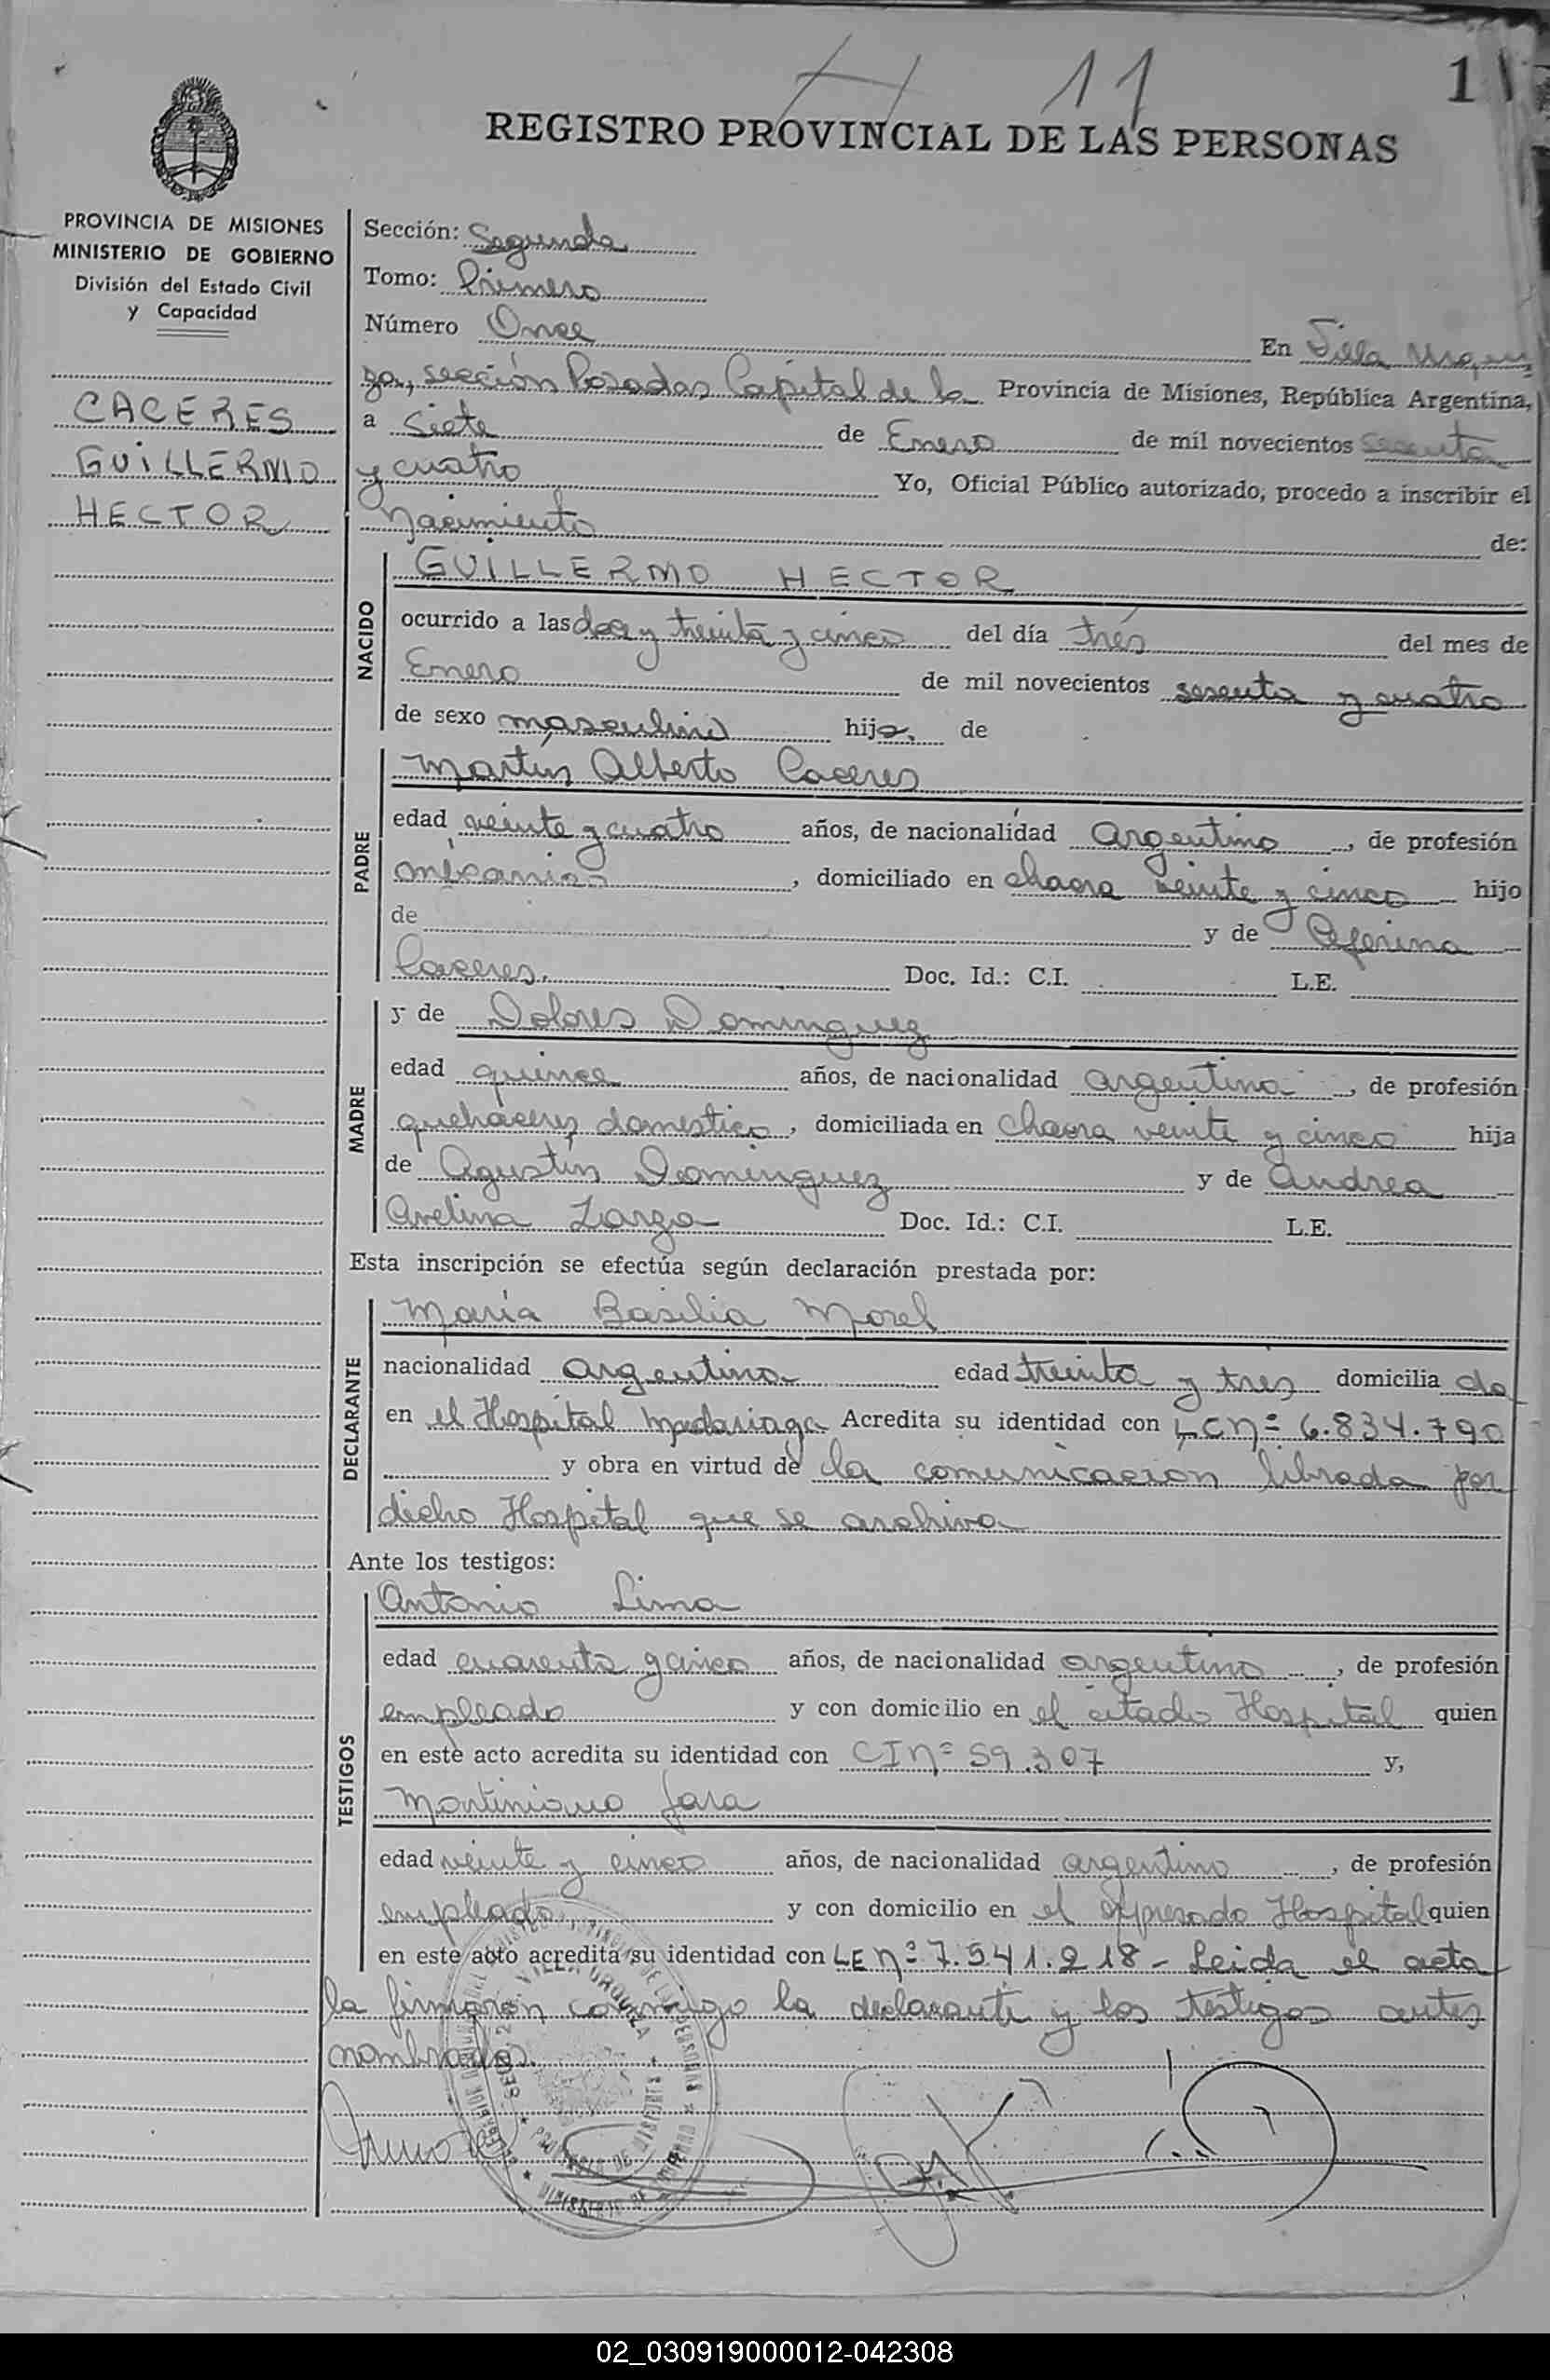 11
1
REGISTRO PROVINCIAL DE LAS PERSONAS
PROVINCIA DE MISIONES
MINISTERIO DE GOBIERNO
División del Estado Civil
y Capacidad
CACERES
GUILLERMO
HECTOR
Sección: Segunda
Tomo: Primero
Número Once En Villa Urqui
za, sección Posadas Capital de la Provincia de Misiones, República Argentina,
a Siete de Enero de mil novecientos
y cuatro Yo, Oficial Público autorizado, procedo a inscribir el
Nacimiento de:
NACIDO
GUILLERMO HECTOR
ocurrido a las y treinta y cinco del día tres del mes de
Enero de mil novecientos sesenta y cuatro
de sexo masculino hijo de
PADRE
Martín Alberto Caceres
edad veinte y cuatro años, de nacionalidad Argentino, de profesión
mecanico, domiciliado en chacra veinte y cinco hijo
de y de Ceferina
Caceres. Doc. Id.: C.I. L.E.
MADRE
y de Dolores Dominguez
edad quince años, de nacionalidad argentina, de profesión
quehaceres domestico, domiciliada en chacra veinte y cinco hija
de Agustín Dominguez y de Andrea
Avelina Doc. Id.: C.I. L.E.
Esta inscripción se efectúa según declaración prestada por:
DECLARANTE
María Basilia Morel
nacionalidad argentina edad treinta y tres domicilia da
en el Hospital Madariaga Acredita su identidad con LC nº 6.834.790
y obra en virtud de la comunicacion librada por
dicho Hospital que se archiva
Ante los testigos:
TESTIGOS
Antonio Lima
edad cuarenta y cinco años, de nacionalidad argentino, de profesión
empleado y con domicilio en el citado Hospital quien
en este acto acredita su identidad con CI nº 59.307 y,
Martiniano Jara
edad veinte y cinco años, de nacionalidad argentino, de profesión
empleado y con domicilio en el expresado Hospital quien
en este acto acredita su identidad con LE nº 7.541.218 - Leida el acta
la firmaron conmigo la declarante y los testigos antes
nombrados.
02_030919000012-042308